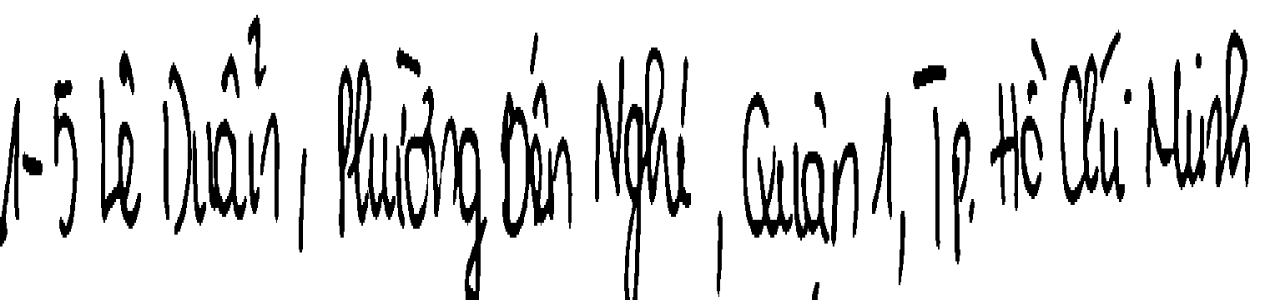 1-5 Lê Duẩn, Phường Bến Nghé, Quận 1, Tp. Hồ Chí Minh